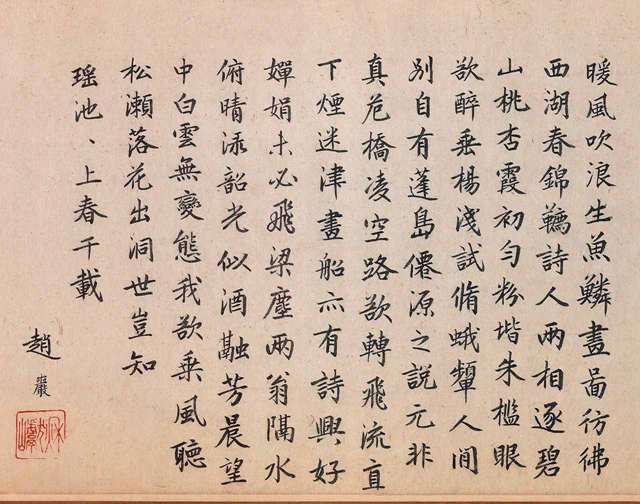 暖風吹浪生魚鱗畫啚彷彿
西湖春錦韉詩人兩相逐碧
山桃杏霞初勻粉堦朱檻眼
欲醉垂楊淺試脩蛾顰人間
別自有蓬島僊源之說元非
真危橋凌空路欲轉飛流直
下煙迷津畫船亦有詩興好
嬋娟未必飛梁塵兩翁隔水
俯晴淥韶光似酒融芳晨望
中白雲無變態我欲乗風聽
松瀨落花出洞世豈知
瑶池、上春千載
趙巖